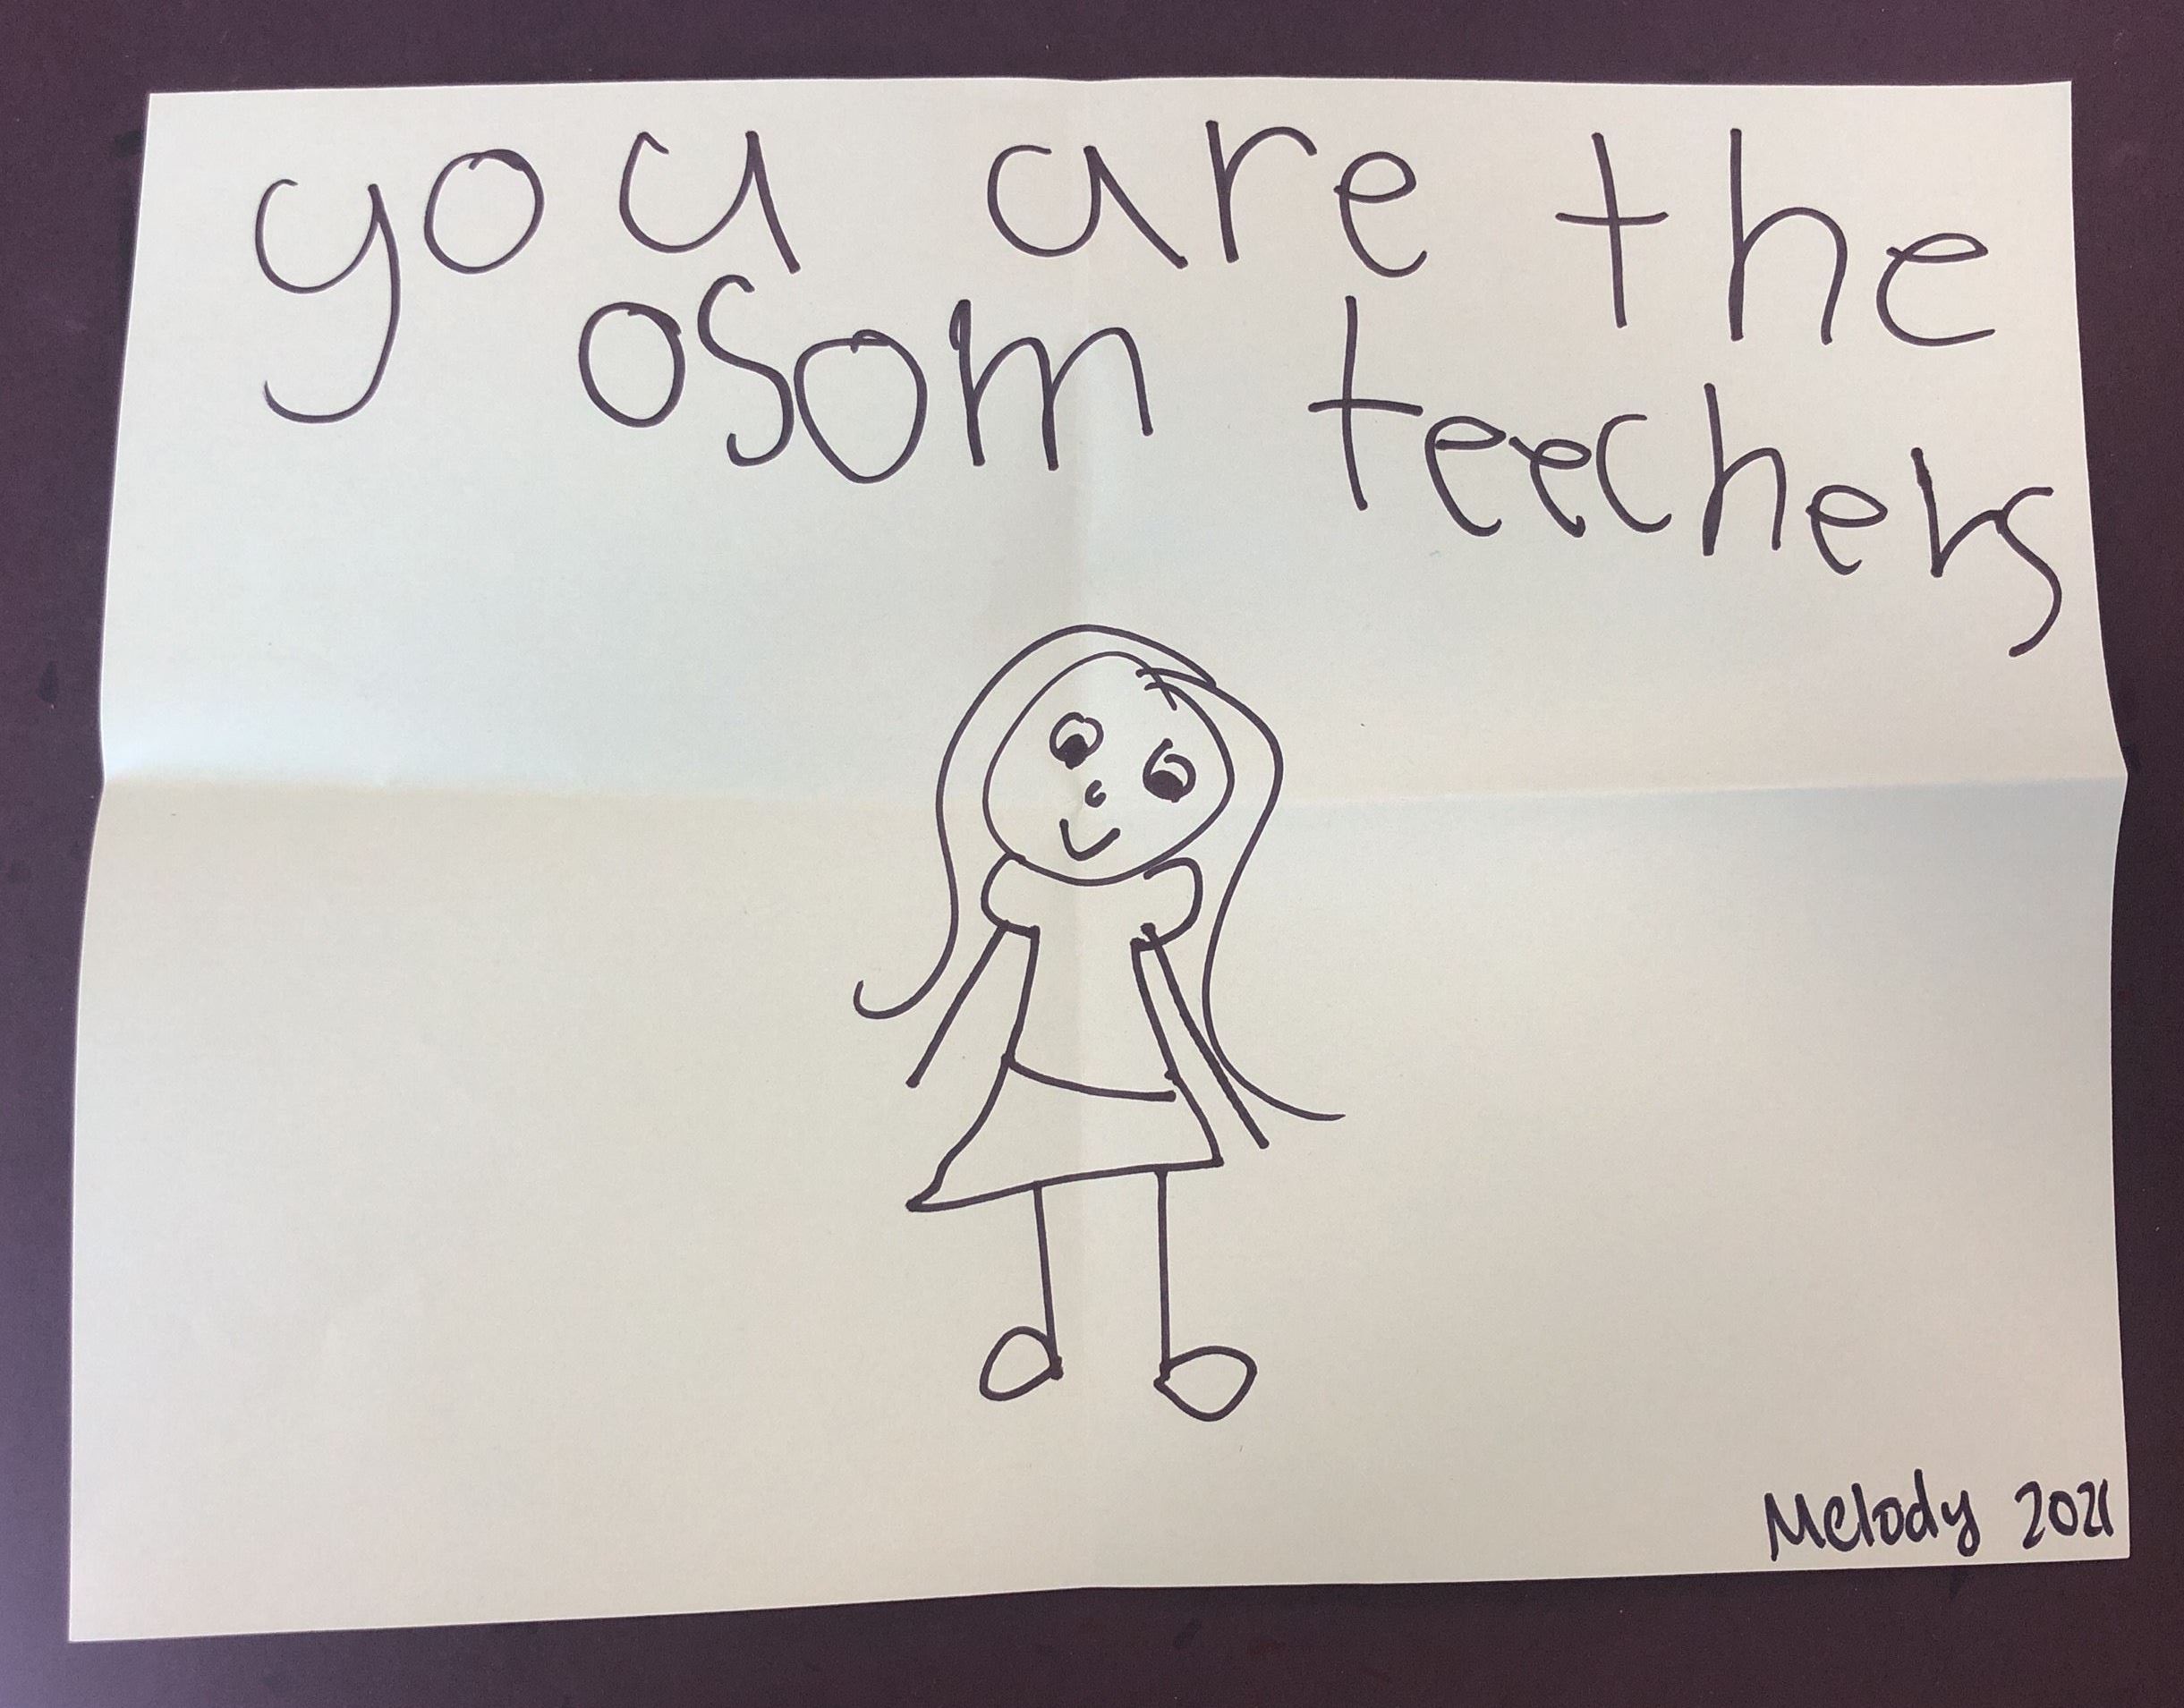 you are the
osom teechers
Melody 2021